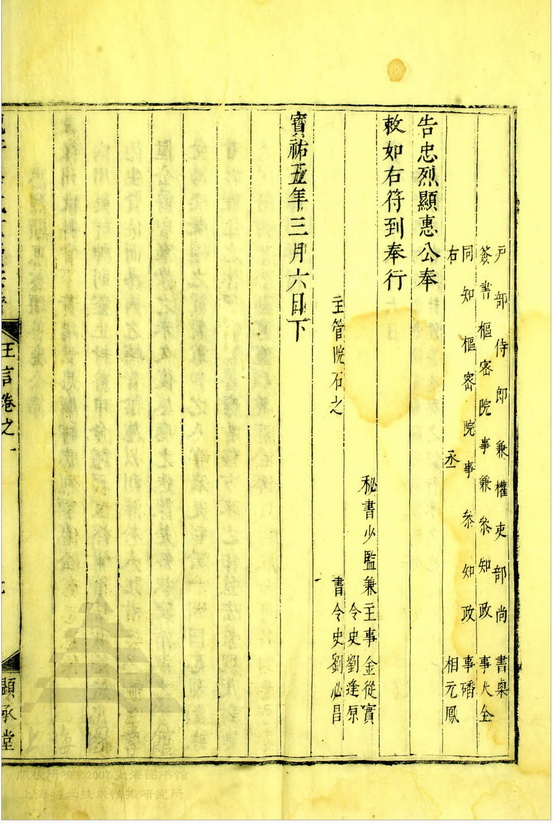 戶部侍郎兼權吏部尚書㮚
簽書樞密院事兼叅知政事大全
同知樞密院事叅知政事磻
右丞相元鳳
告忠烈顯惠公奉
敕如右符到奉行
秘書少監兼主事金從實
令史劉逢原
主管院石之
書令史劉必昌
寶祐五年三月六日下
王言卷之一
顯承堂